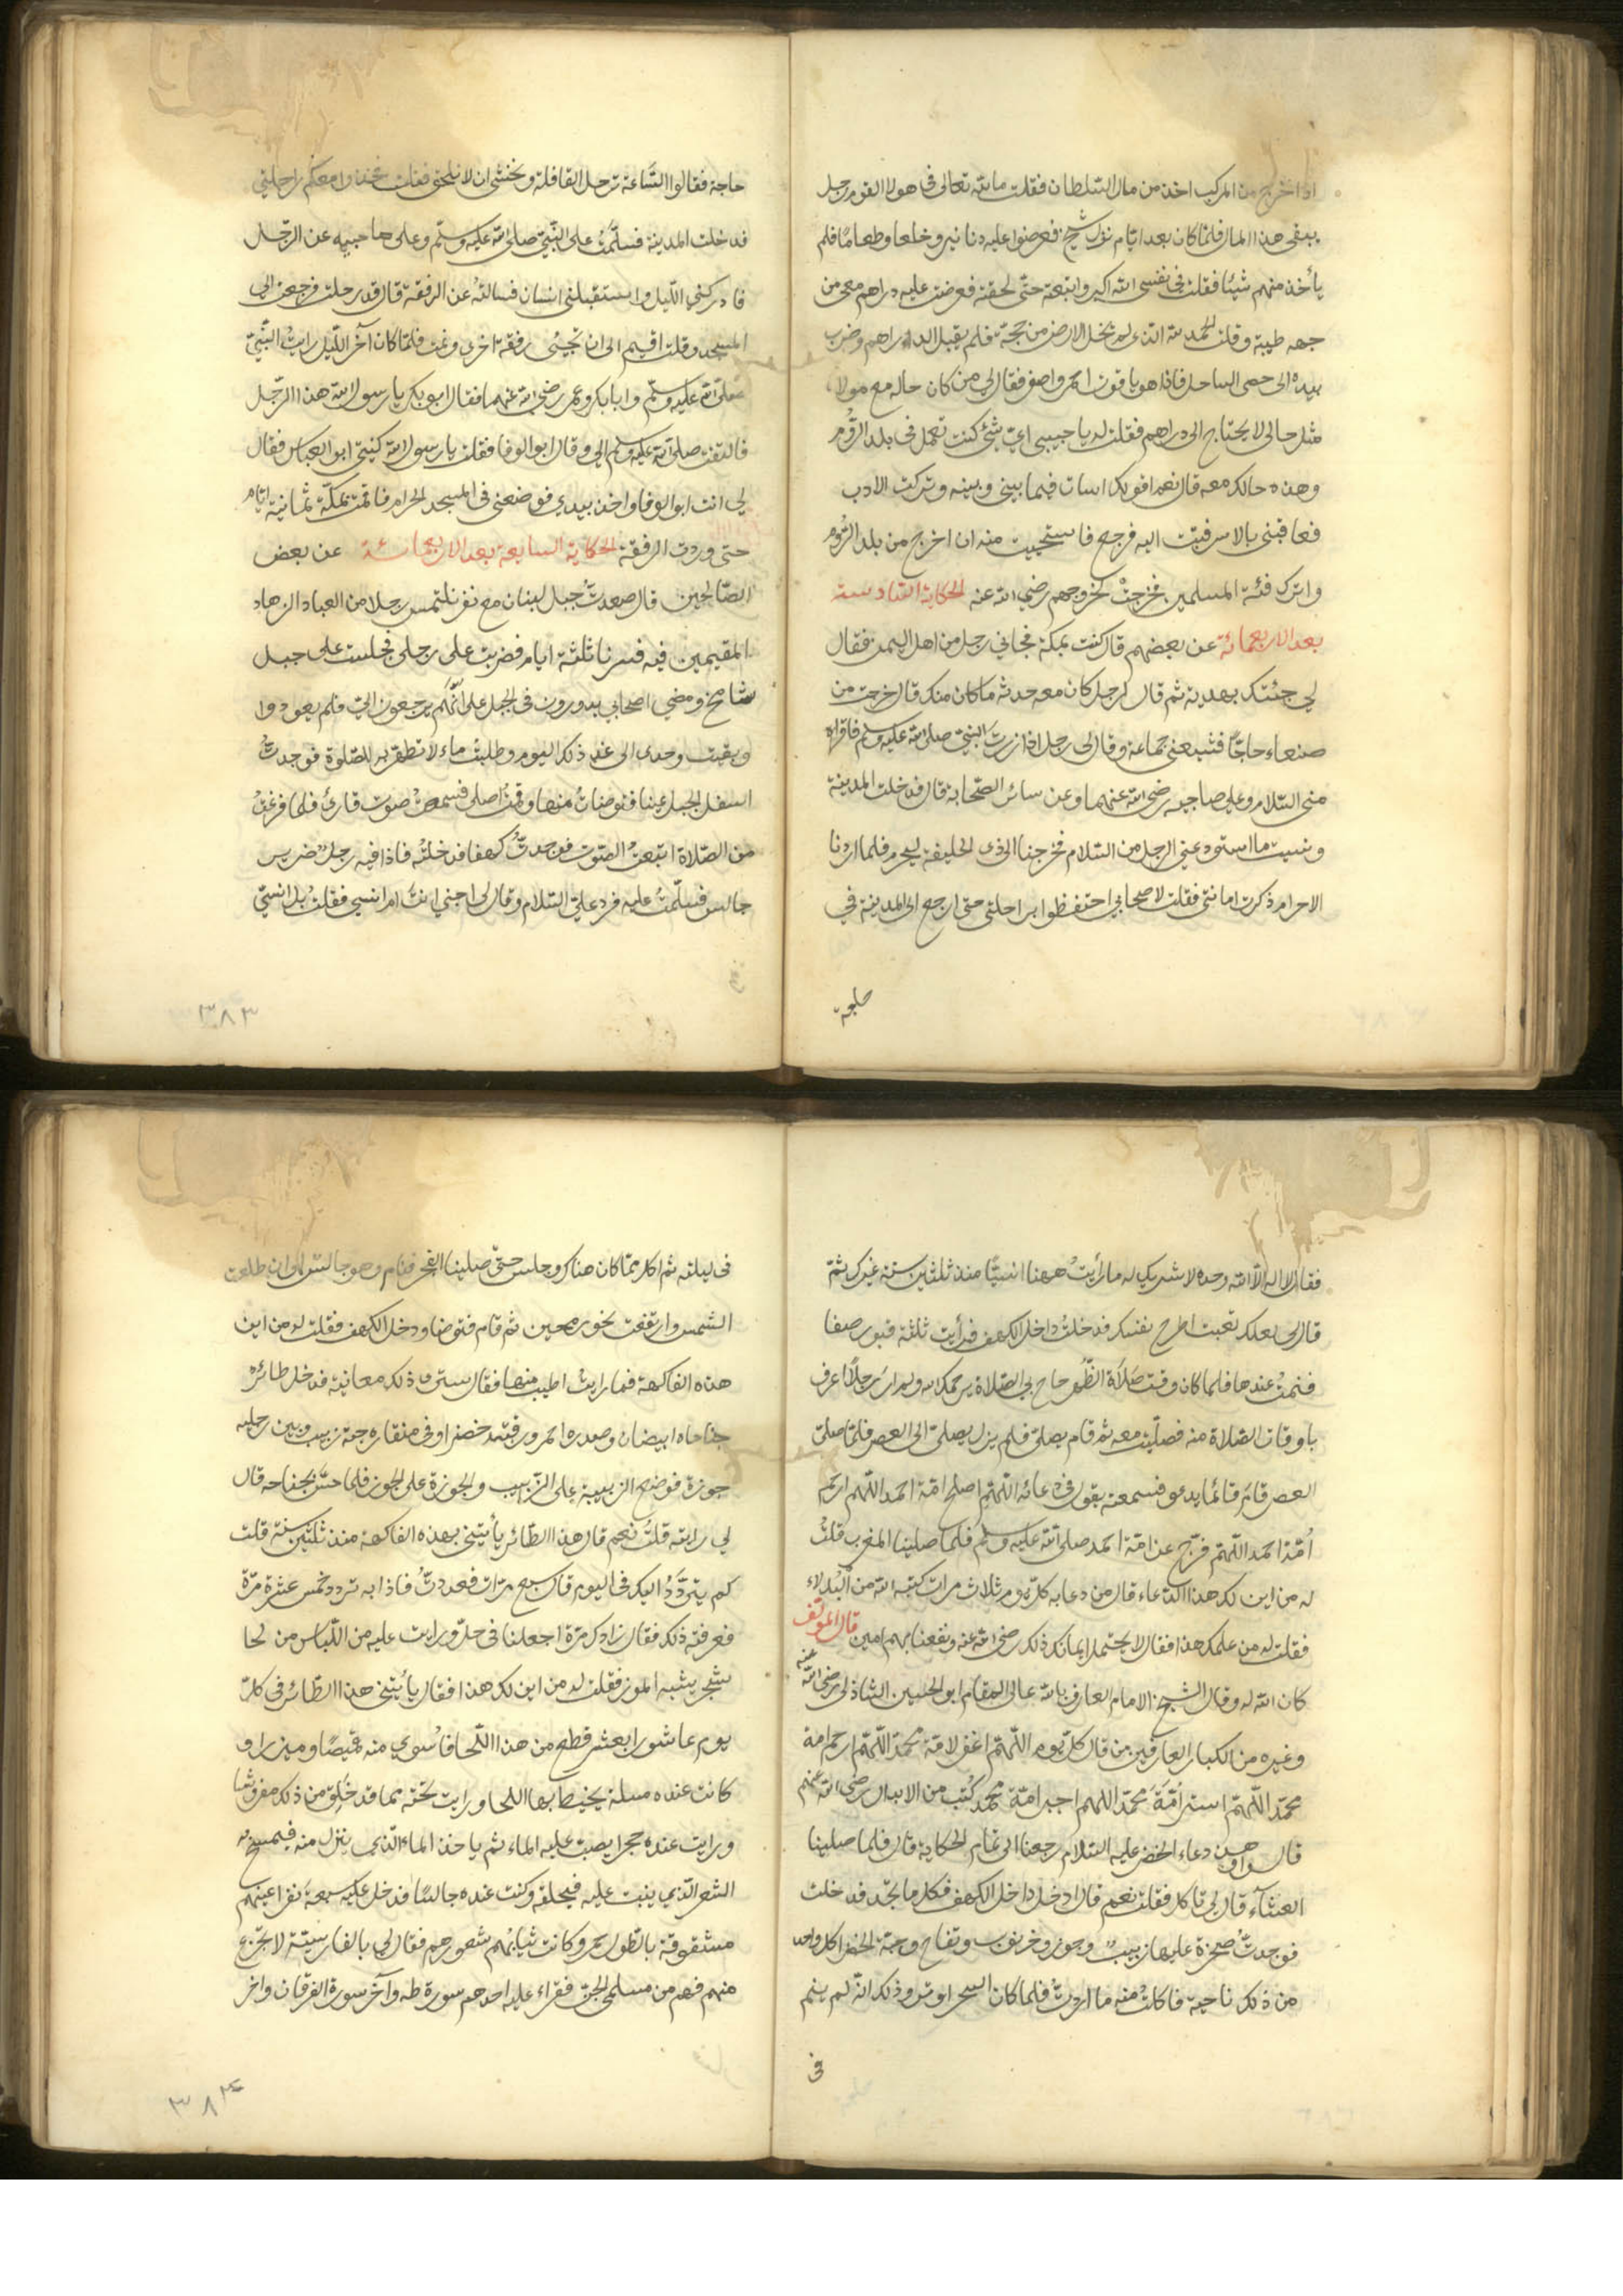 اذا خرج من المركب اخذ من مال السلطان فقلت ما بقى لله تعالى فى هولا القوم رجل
يبقى هذا المال فلما كان بعد ايام نزل شيخ فعرضوا عليه دنانير وخلعا وطعاما فلم
يأخذ منهم شيئا فقلت فى نفسى الله اكبر واتبعته حتى لحقته فعرضت عليه دراهم معى من
جهه طيبة وقلت الحمد لله الذى لم يخل الارض من حجة فلم يقبل الدراهم وضرب
بيده الى حصى الساحل فاذا هو ياقوت احمر واصفر فقال لى من كان حاله مع مولاه
مثل حالى لا يحتاج الى دراهم فقلت له يا حبيبى اى شئ كنت تعمل فى بلد الروم
وهذه حالك معه قال نعم اقولك اسات فيما بينى وبينه وتركت الادب
فعاقبنى بالاسر فتبت اليه فرجع فاستحييت منه ان اخرج من بلد الروم
واترك فئة المسلمين فخرجت بخروجهم رضى الله عنه الحكاية السادسة
بعد الاربعمائة عن بعضهم قال كنت بمكة فجانى رجل من اهل اليمن فقال
لى جئتك بهدية ثم قال لرجل كان معه حدثه ما كان منك قال خرجت من
صنعاء حاجا فشيعنى جماعة وقال لى رجل اذا زرت النبى صلى الله عليه وسلم فاقراه
منى السلام وعلى صاحبيه رضى الله عنهما وعن سائر الصحابة قال فدخلت المدينة
ونسيت ما استودعنى الرجل من السلام فخرجنا الى ذى الحليفة لنحرم فلما اردنا
الاحرام ذكرت امانتى فقلت لاصحابى احتفظوا براحلتى حتى ارجع الى المدينة فى
حاجة
حاجة فقالوا الساعة ترحل القافلة ونخشى ان لا تلحق فقلت خذوا معكم راحلتى
فدخلت المدينة فسلمت على النبى صلى الله عليه وسلم وعلى صاحبيه عن الرجل
فادركنى الليل واستقبلنى انسان فسالته عن الرفقة قال قد رحلت فرجعت الى
المسجد وقلت اقيم الى ان تجيئ رفقة اخرى ونمت فلما كان آخر الليل رايت النبى
صلى الله عليه وسلم وابا بكر وعمر رضى الله عنهما فقال ابو بكر يا رسول الله هذا الرجل
فالتفت صلى الله عليه وسلم الى وقال ابو الوفا فقلت يا رسول الله كنيتى ابو العباس فقال
لى انت ابو الوفا واخذ بيدى فوضعنى فى المسجد الحرام فاقمت بمكة ثمانية ايام
حتى وردت الرفقة الحكاية السابعة بعد الاربعمائة عن بعض
الصالحين قال صعدت جبل لبنان مع نفر نلتمس رجلا من العباد الزهاد
المقيمين فيه فسرنا ثلثة ايام فضربت على رجلى فجلست على جبل
شامخ ومضى اصحابى يدورون فى الجبل على انهم يرجعون الى فلم يعودوا
وبقيت وحدى الى غد ذلك اليوم وطلبت ماء لاتطهر به للصلوة فوجدت
اسفل الجبل عينا فتوضات منها وقمت اصلى فسمعت صوت قارئ فلما فرغت
من الصلاة اتبعت الصوت فوجدت كهفا فدخلته فاذا فيه رجل ضرير
جالس فسلمت عليه فرد على السلام وقال لى اجنى انت ام انسى فقلت بل انسى
٣٨٣
فقال لا اله الا الله وحده لا شريك له ما رأيت ههنا انسيا منذ ثلثين سنة غيرك ثم
قال لى لعلك تعبت اطرح نفسك فدخلت داخل الكهف فرأيت ثلثة قبور صفا
فنمت عندها فلما كان وقت صلاة الظهر صاح بى الصلاة يرحمك الله ولم ار رجلا اعرف
باوقات الصلاة منه فصليت معه ثم قام يصلى فلم يزل يصلى الى العصر فلما صلى
العصر قام قائما يدعو فسمعته يقول فى دعائه اللهم اصلح امة احمد اللهم ارحم
امة احمد اللهم فرج عن امة احمد صلى الله عليه وسلم فلما صلينا المغرب قلت
له من اين لك هذا الدعاء قال من دعا به كل يوم ثلاث مرات كتبه الله من البدلاء
فقلت له من علمك هذا فقال لا يحتمل ايمانك ذلك رضى الله عنه ونفعنا بهم امين قال المؤلف
كان الله له وقال الشيخ الامام العارف بالله عالى المقام ابو الحسين الشاذلى رضى الله عنه
وغيره من الكبار العارفين من قال كل يوم اللهم اغفر لامة محمد اللهم ارحم امة
محمد اللهم استر امة محمد اللهم اجبر امة محمد كتب من الابدال رضى الله عنهم
قال وهو من دعاء الخضر عليه السلام رجعنا الى تمام الحكاية قال فلما صلينا
العشآء قال لى تاكل فقلت نعم قال ادخل داخل الكهف فكل ما تجد فدخلت
فوجدت صخرة عليها زبيب وجوز وخرنوب وتفاح وحبة الخضرا كل واحد
من ذلك ناحية فاكلت منه ما اردت فلما كان السحر اوتر وذلك انه لم ينم
فى
فى ليلته ثم اكل مما كان هناك وجلس حتى صلينا الفجر فنام وهو جالس الى ان طلعت
الشمس وارتفعت نحو رمحين ثم قام فتوضا ودخل الكهف فقلت له من اين
هذه الفاكهة فما رايت اطيب منها فقال سترى ذلك معاينة فدخل طائر
جناحاه ابيضان وصدره احمر ورقبته خضرا وفى منقاره حبة زبيب وبين رجليه
جوزة فوضع الزبيبة على الزبيب والجوزة على الجوز فلما حس بجناحه قال
لى رايته قلت نعم قال هذا الطائر يأتينى بهذه الفاكهة منذ ثلثين سنة قلت
كم يتردد اليك فى اليوم قال سبع مرات فعددت فاذا به تردد خمس عشرة مرة
فعرفته ذلك فقال زادك مرة اجعلنا فى حل ورايت عليه من اللباس من لحا
شجر يشبه الموز فقلت له من اين لك هذا فقال يأتينى هذا الطائر فى كل
يوم عاشورا بعشر قطع من هذا اللحا فاسوى منه قميصا وميزرا و
كانت عنده مسلة يخيط بها اللحا ورايت تحته مما قد خلق من ذلك مفروشا
ورايت عنده حجرا يصب عليه الماء ثم ياخذ الماء الذى ينزل منه فيمسح به
الشعر الذى ينبت عليه فيحلقه وكنت عنده جالسا فدخل عليه سبعة نفر اعينهم
مشقوقة بالطول حمر وكانت ثيابهم شعورهم فقال لى بالفارسية لا تجزع
منهم فهم من مسلمى الجن فقراء عليه احدهم سورة طه وآخر سورة الفرقان واخر
٣٨٤